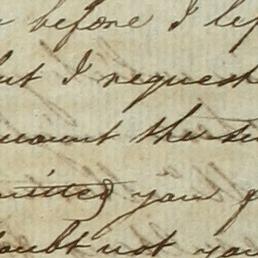 before I lef
but I request
mount the su
mitted your p
doubt not you